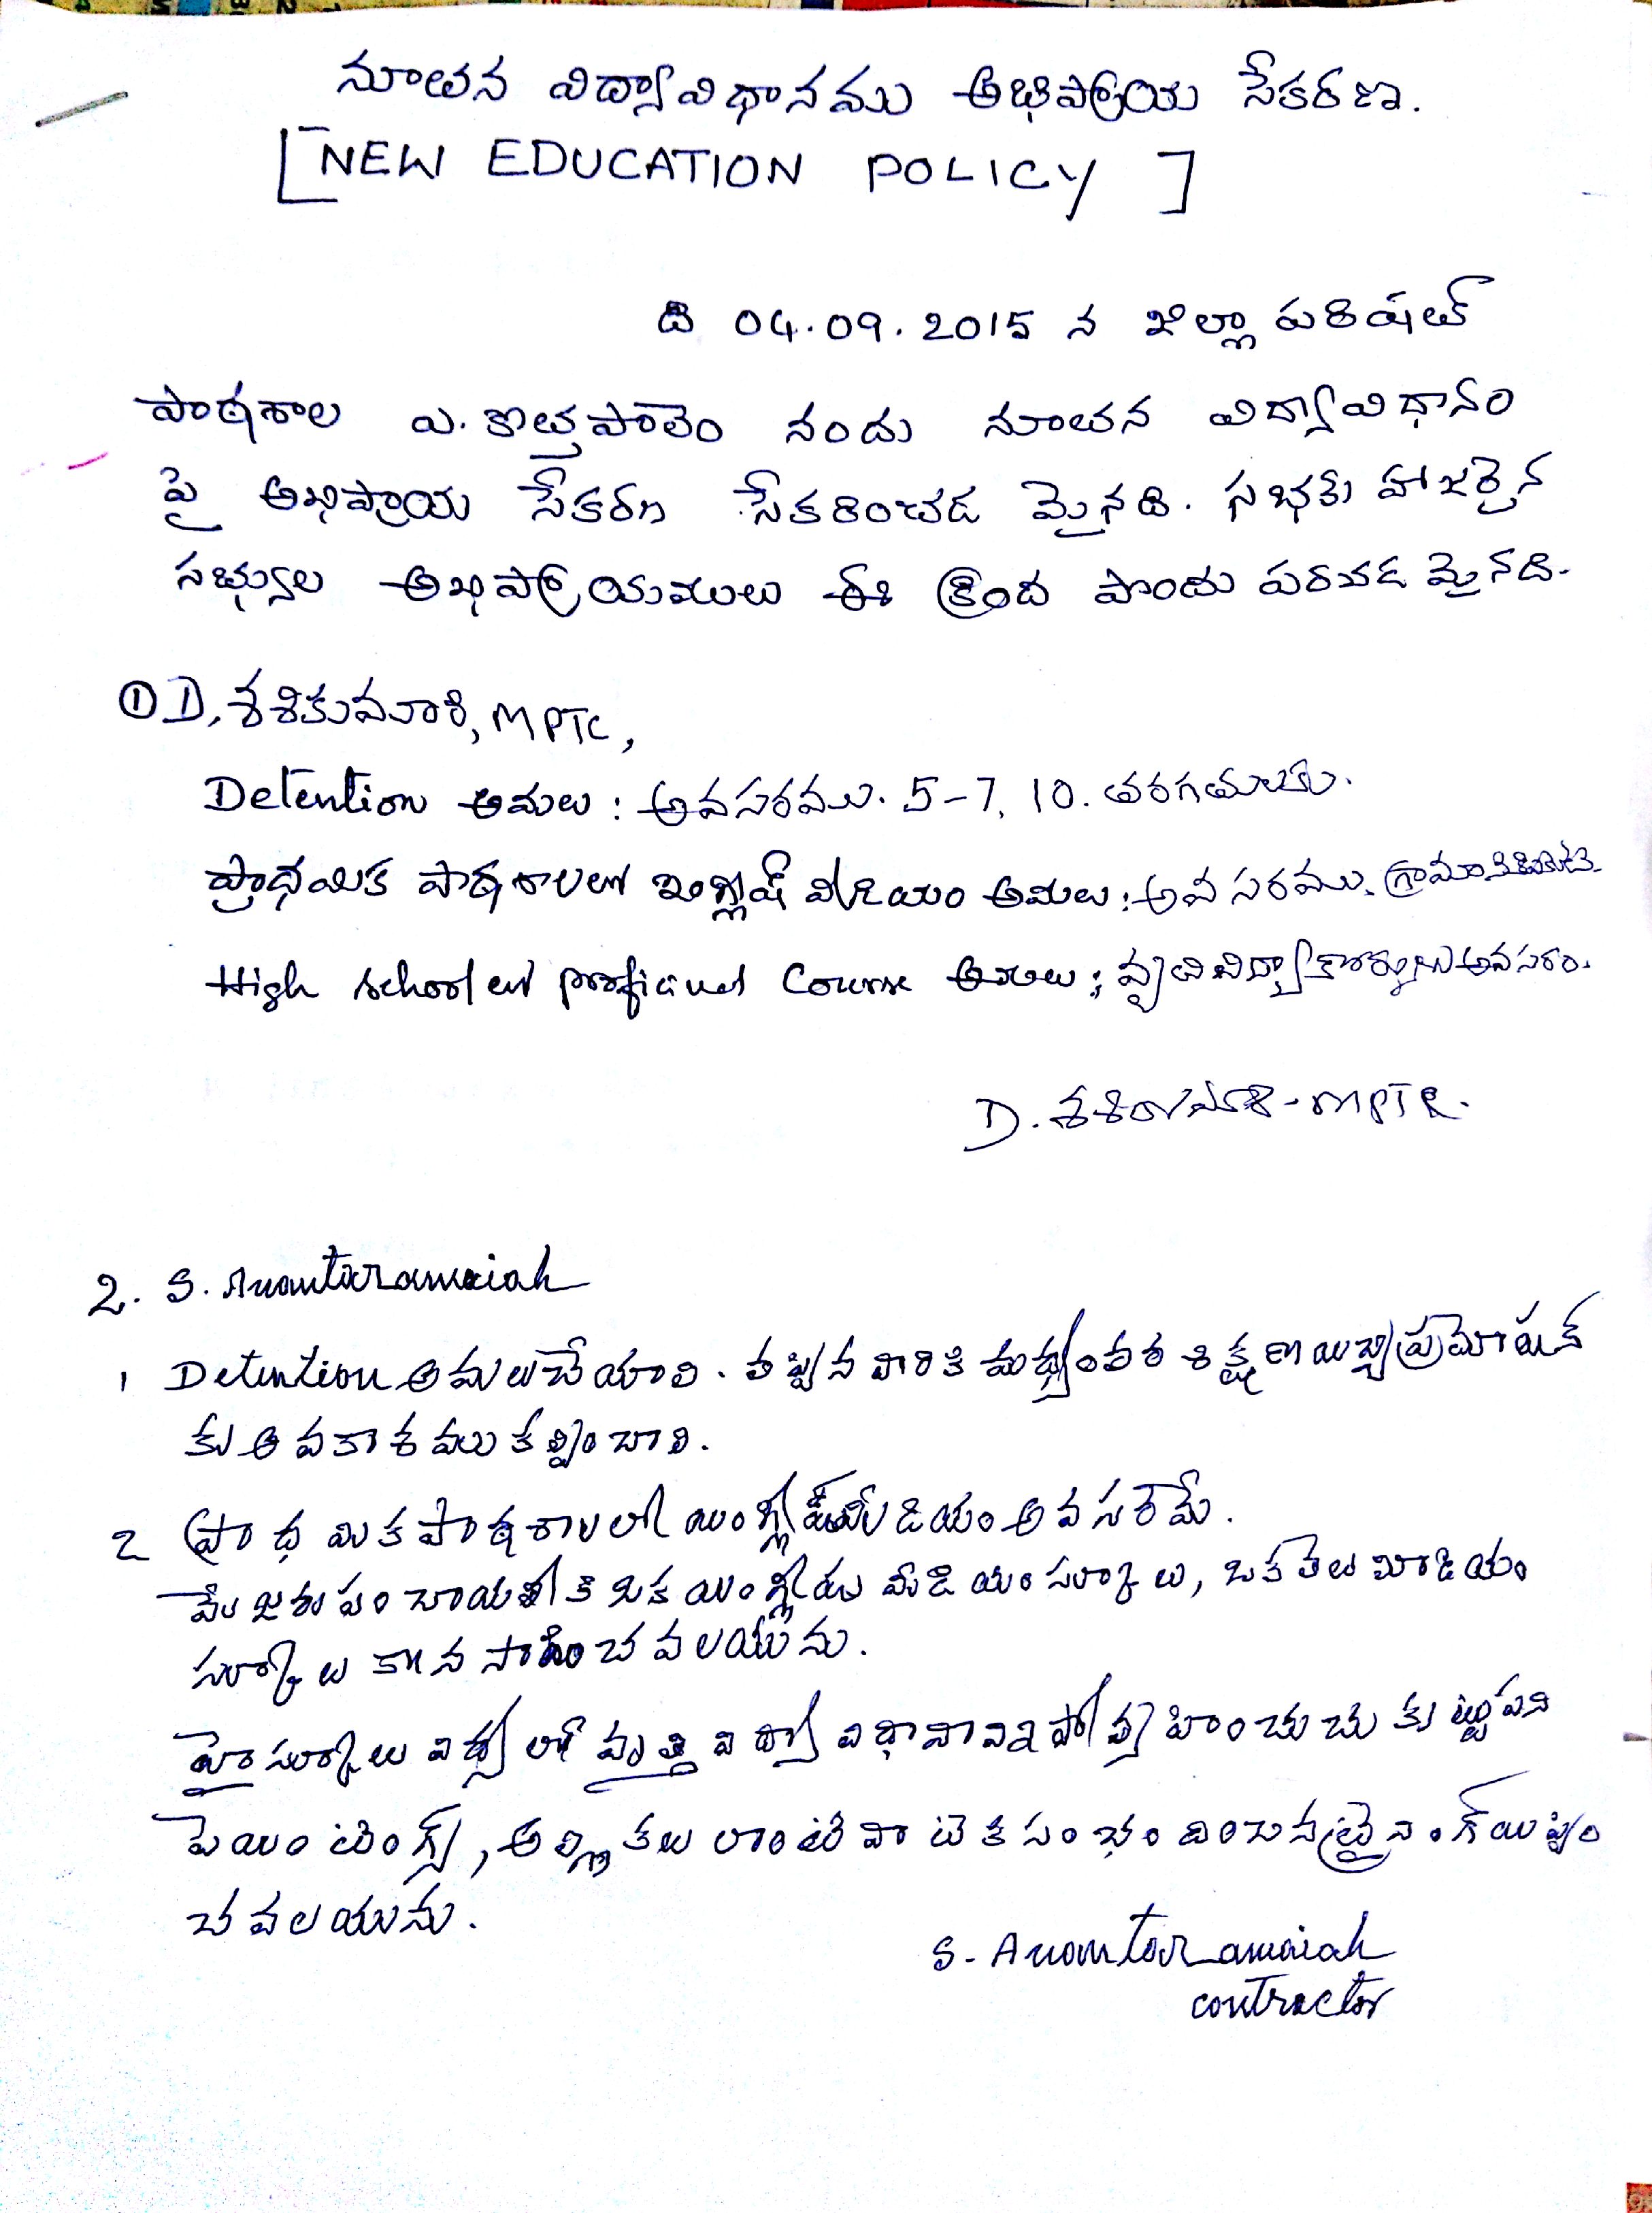 నూతన విద్యావిధానము అభిప్రాయ సేకరణ.
[NEW EDUCATION POLICY]
ది 04.09.2015 న జిల్లా పరిషత్
పాఠశాల ఎ. కొత్తపాలెం నందు నూతన విద్యావిధానం
పై అభిప్రాయ సేకరణ సేకరించడ మైనది. సభకు హాజరైన
సభ్యుల అభిప్రాయములు ఈ క్రింద పొందు పరచడ మైనది.
① D. శశికుమారి, MPTC,
Detention అమలు : అవసరము. 5-7, 10. తరగతులకు.
ప్రాధమిక పాఠశాలలో ఇంగ్లీష్ మీడియం అమలు : అవసరము.
High school లో Course అమలు : వృత్తి విద్యా కోర్సులు అవసరం.
D. శశికుమారి - MPTC.
2. S. Anantaramaiah
1 Detention అమలు చేయాలి. తప్పిన వారికి మధ్యంతర శిక్షణ యిచ్చి ప్రమోషన్
కు అవకాశములు కల్పించాలి.
2 ప్రాధమికపాఠశాలలో యింగ్లీష్ మీడియం అవసరమే.
మేజరు పంచాయితీకి ఒక యింగ్లీషు మీడియం స్కూలు, ఒక తెలుగు మీడియం
స్కూలు కొనసాగించవలయును.
హైస్కూలు విద్యలో వృత్తి విద్యా విధానాన్ని ప్రోత్సహించుచు కుట్టుపని
పెయింటింగ్స్, అల్లికలు లాంటి వాటికి సంభందించిన ట్రైనింగ్ యిప్పిం
చవలయును.
S. Anantaramaiah
contractor